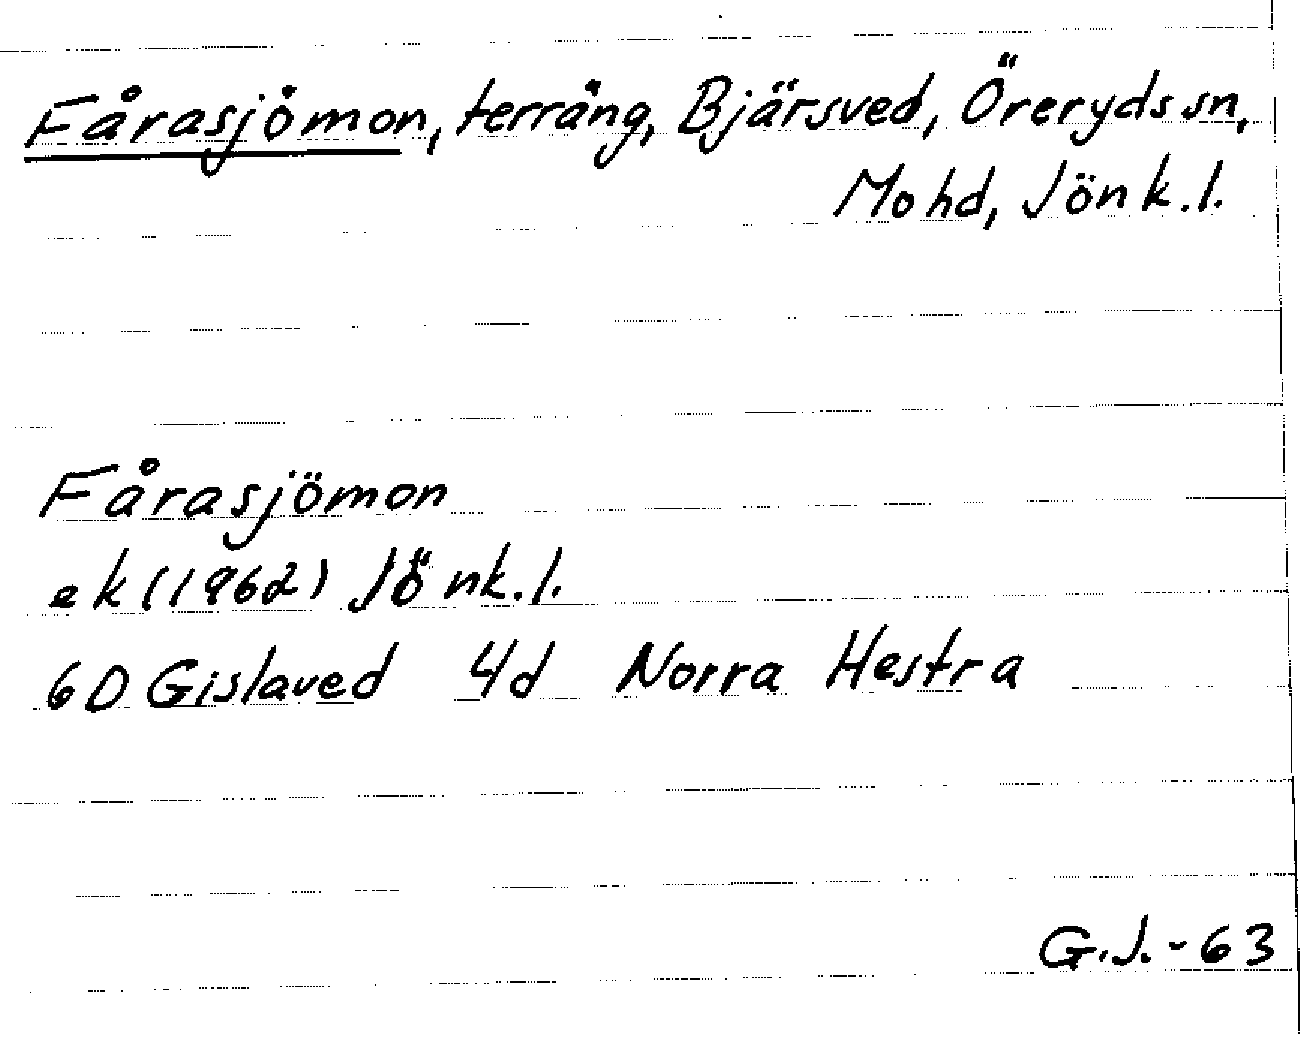 Fårasjömon, terräng, Bjärsved, Öreryds sn,
Mohd, Jönk.l.
Fårasjömon
ek (1962) Jönk.l.
6D Gislaved 4d Norra Hestra
G.J.-63